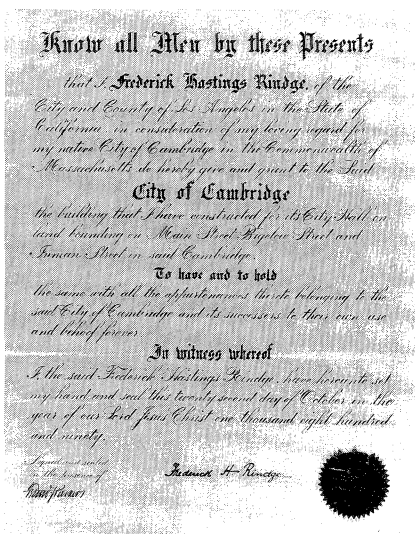 Know all Men by these Presents
that I, Frederick Hastings Rindge, of the
City and County of Los Angeles in the State of
California in consideration of my loving regard for
my native City of Cambridge in the Commonwealth of
Massachusetts do hereby give and grant to the Said
City of Cambridge
the building that I have constructed for its City Hall on
land bounding on Main Street Bigelow Street and
Inman Street in said Cambridge.
To have and to hold
the same with all the appurtenances thereto belonging to the
said City of Cambridge and its successors to their own use
and behoof forever
In witness whereof
I, the said Frederick Hastings Rindge, have hereunto set
my hand and seal this twenty second day of October in the
year of our Lord Jesus Christ one thousand eight hundred
and ninety.
Signed and sealed
in the presence of
Frederick H Rindge